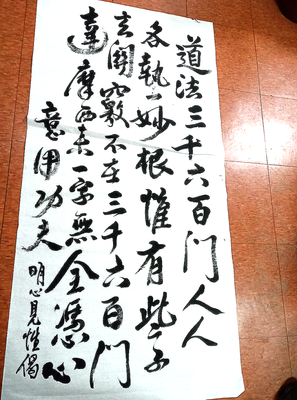 道法三千六百门人人
各執一妙根惟有些子
玄關竅不在三千六百門
達摩西来一字無全憑心
意用功夫
明心見性偈